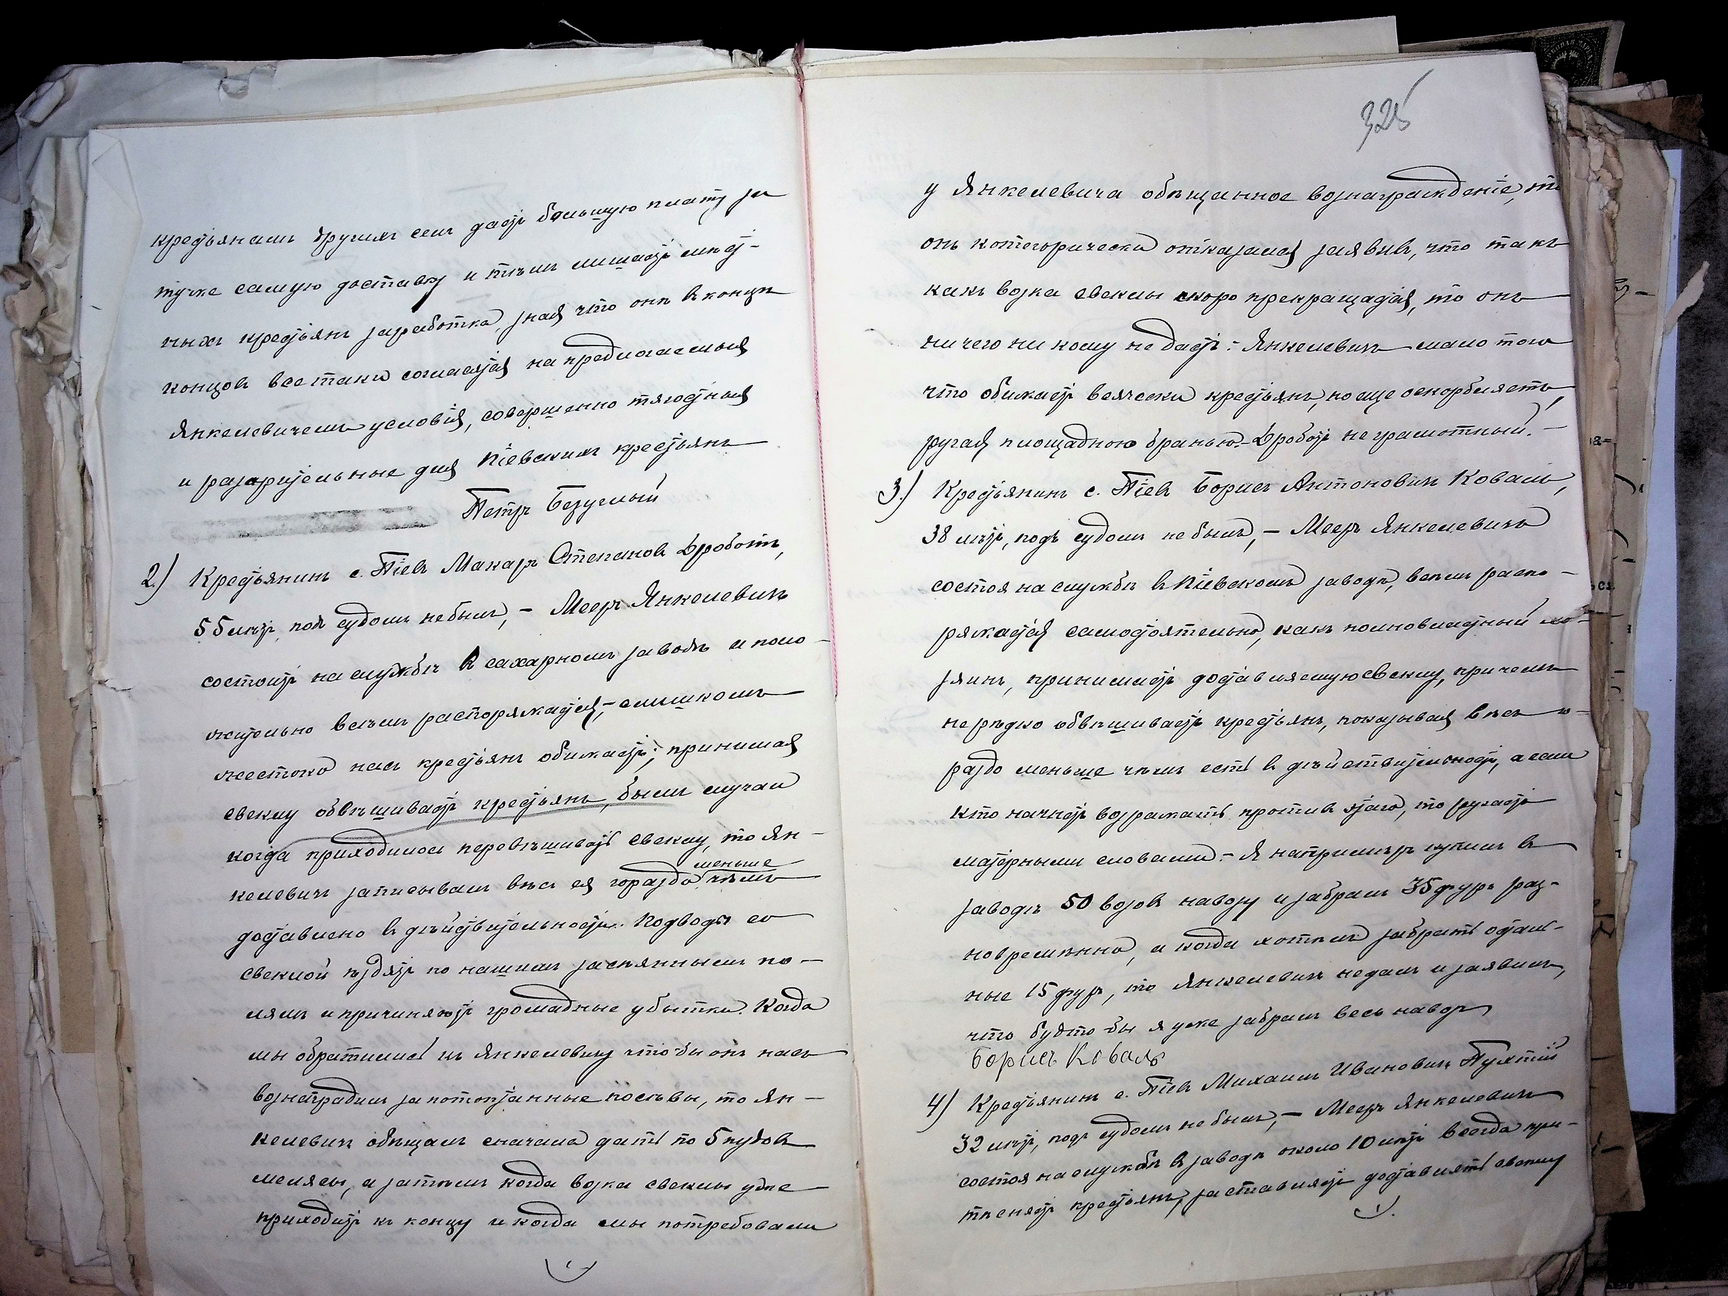 крестьянамъ другихъ селъ даетъ большую плату за
туже самую доставку и тѣмъ лишаетъ мѣст-
ныхъ крестьянъ заработка, зная что они въ концѣ
концовъ все таки согласятся на предлагаемыя
Янкелевичемъ условія, совершенно тягостныя
и разорительные для Піевскихъ крестьянъ
Петръ Безуглый
2.) Крестьянинъ с. Піевъ Макаръ Степановъ Дроботъ,
55 лѣтъ, подъ судомъ не былъ, – Мееръ Янкелевичъ
состоитъ на службѣ въ сахарномъ заводѣ и поло-
жительно всѣмъ распоряжается, – слишкомъ
жестоко насъ крестьянъ обижаетъ; принимая
свеклу обвѣшиваетъ крестьянъ, были случаи
когда приходилось перевѣшивать свеклу, то Ян-
келевичъ записывалъ вѣсъ ея гораздо меньше чѣмъ
доставлено въ дѣйствительности. Подводы со
свеклой ѣздятъ по нашимъ засѣяннымъ по-
лямъ и причиняютъ громадные убытки. Когда
мы обратились къ Янкелевичу чтобы онъ насъ
вознаградилъ за потоптанные посѣвы, то Ян-
келевичъ обѣщалъ сначала дать по 5 пудовъ
мелясы, а затѣмъ когда возка свеклы уже
приходитъ къ концу и когда мы потребовали
325
у Янкелевича обѣщанное вознагражденіе, то
онъ котегорически отказался заявивъ, что такъ
какъ возка свеклы скоро прекращается, то онъ
ничего ни кому не дастъ: Янкелевичъ мало того
что обижаетъ всячески крестьянъ, но еще оскорбляетъ,
ругая площадною бранью. – Дроботъ неграмотный. –
3.) Крестьянинъ с. Піевъ Борисъ Антоновичъ Коваль,
38 лѣтъ, подъ судомъ не былъ, – Мееръ Янкелевичъ
состоя на службѣ въ Піевскомъ заводѣ, всѣмъ распо-
ряжается самостоятельно, какъ полновластный хо-
зяинъ, принимаетъ доставляемую свеклу, при чемъ
не рѣдко обвѣшиваетъ крестьянъ, показывая вѣсъ го-
раздо меньше чѣмъ есть въ дѣйствительности, а если
кто начнетъ возражать противъ этаго, то ругаетъ
матерными словами – Я напримѣръ купилъ въ
заводѣ 50 возовъ навозу и забралъ 35 фуръ раз-
новременно, а когда хотѣлъ забрать осталь-
ные 15 фуръ, то Янкелевичъ не далъ и заявилъ,
что будто бы я уже забралъ весь навозъ
Борисъ Коваль
4) Крестьянинъ с. Піевъ Михаилъ Ивановичъ
32 лѣтъ, подъ судомъ не былъ, – Мееръ Янкелевичъ
состоя на службѣ въ заводѣ около 10 лѣтъ всегда при-
тѣсняетъ крестьянъ, заставляетъ доставлять свеклу